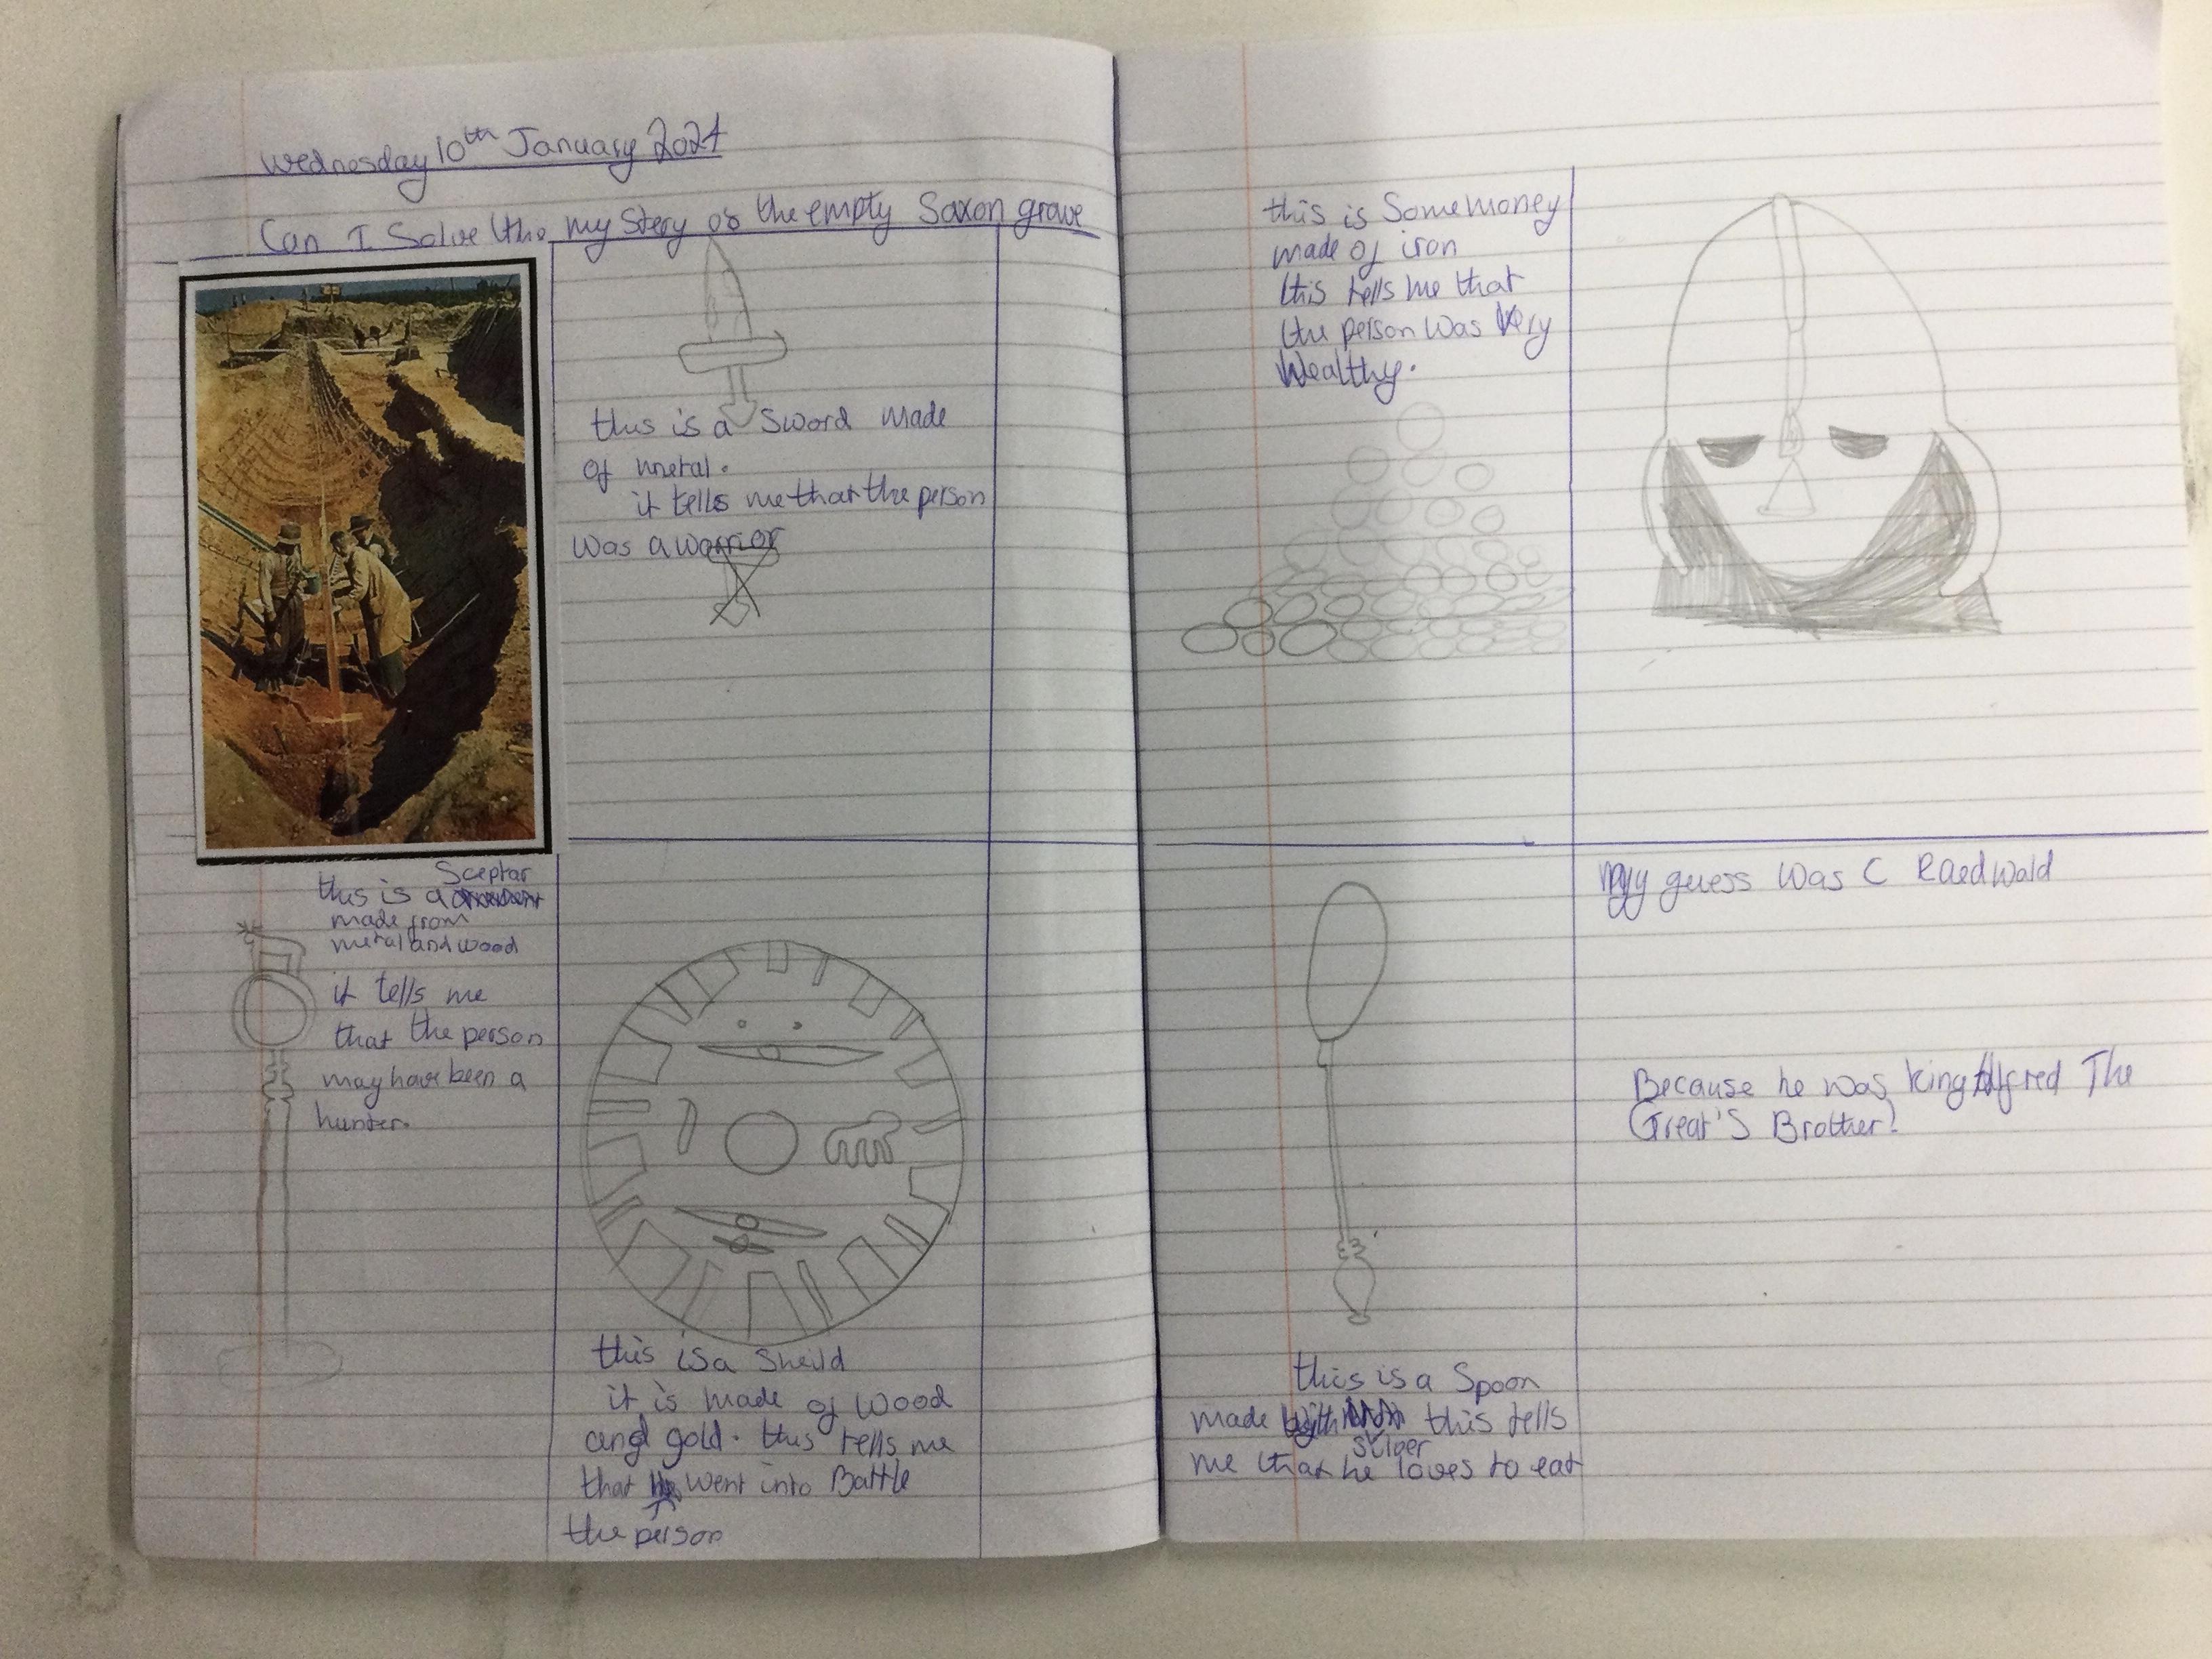 Wednesday 10th January 2024
Can I Solve the mystery of the empty Saxon grave
this is a Sword made
of metal.
it tells me that the person
was a warrior
this is a Sceptar
made from
metal and wood
it tells me
that the person
may have been a
hunter.
this is a Sheild
it is made of wood
and gold. this tells me
that went into Battle
the person
this is Some money
made of iron
this tells me that
the person was Very
Wealthy.
this is a Spoon
made with silver this tells
me that he loves to eat
My guess was C Raedwald
Because he was king Alfred The
Great's Brother!